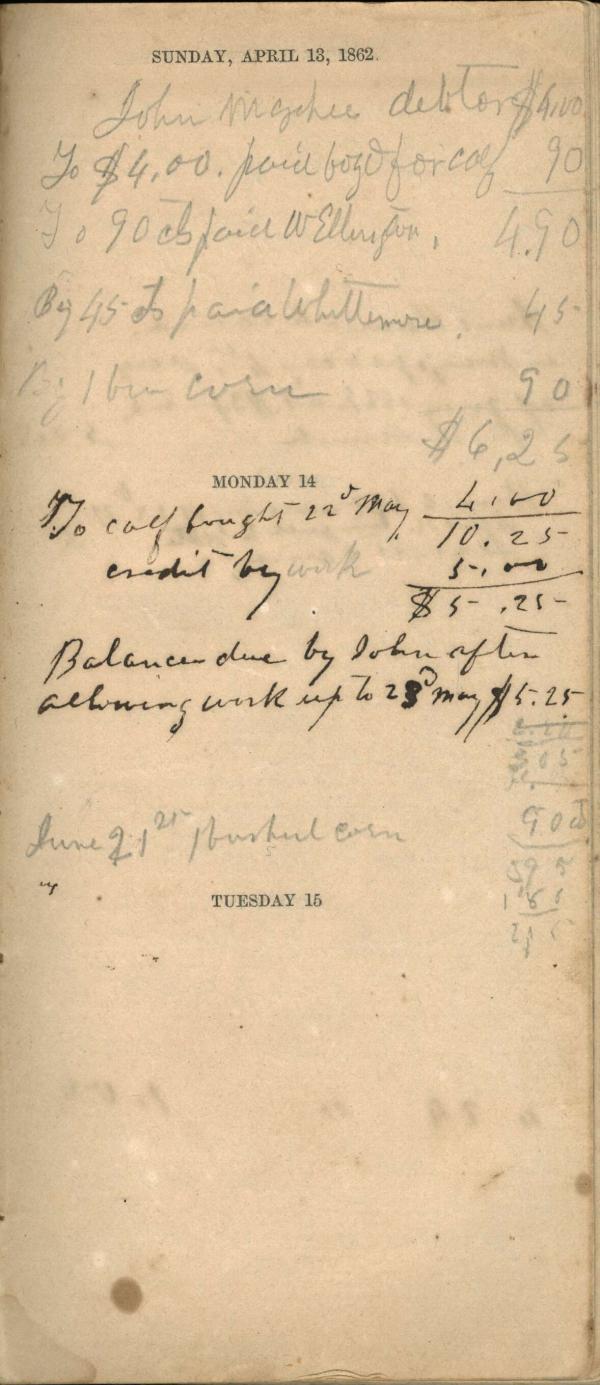 SUNDAY, APRIL 13, 1862.
John debtor $4.00
To $4.00. paid for calf 90
To 90 cts paid W Ellington, 4.90
By 45 cts paid Whittemore. 45
By 1 bus corn 90
$6,25
MONDAY 14
To calf bought 22d May 4.00
10.25
credit by work 5.00
$5.25
Balance due by John after
allowing work up to 23d May $5.25
305
June 21st 1 bushel corn 90 cts
595
TUESDAY 15